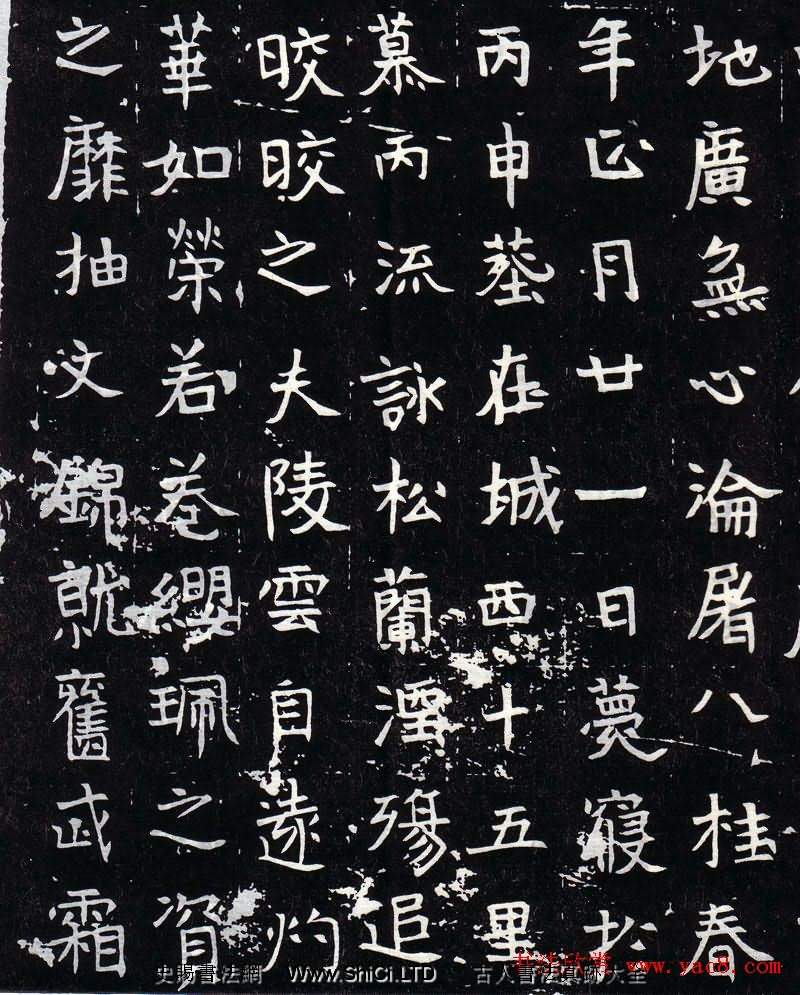 地廣無心淪屠八桂春
年正月廿一日薨寢於
丙申葬在城西十五里
慕丙流詠松蘭湮殤追
晈晈之夫陵雲自遠灼
華如榮若卷纓珮之資
之靡抽文錦就舊武霜
史賜書法網 WWW.ShiCi.LTD 古人書法真跡大全
书法欣赏 www.yac8.com